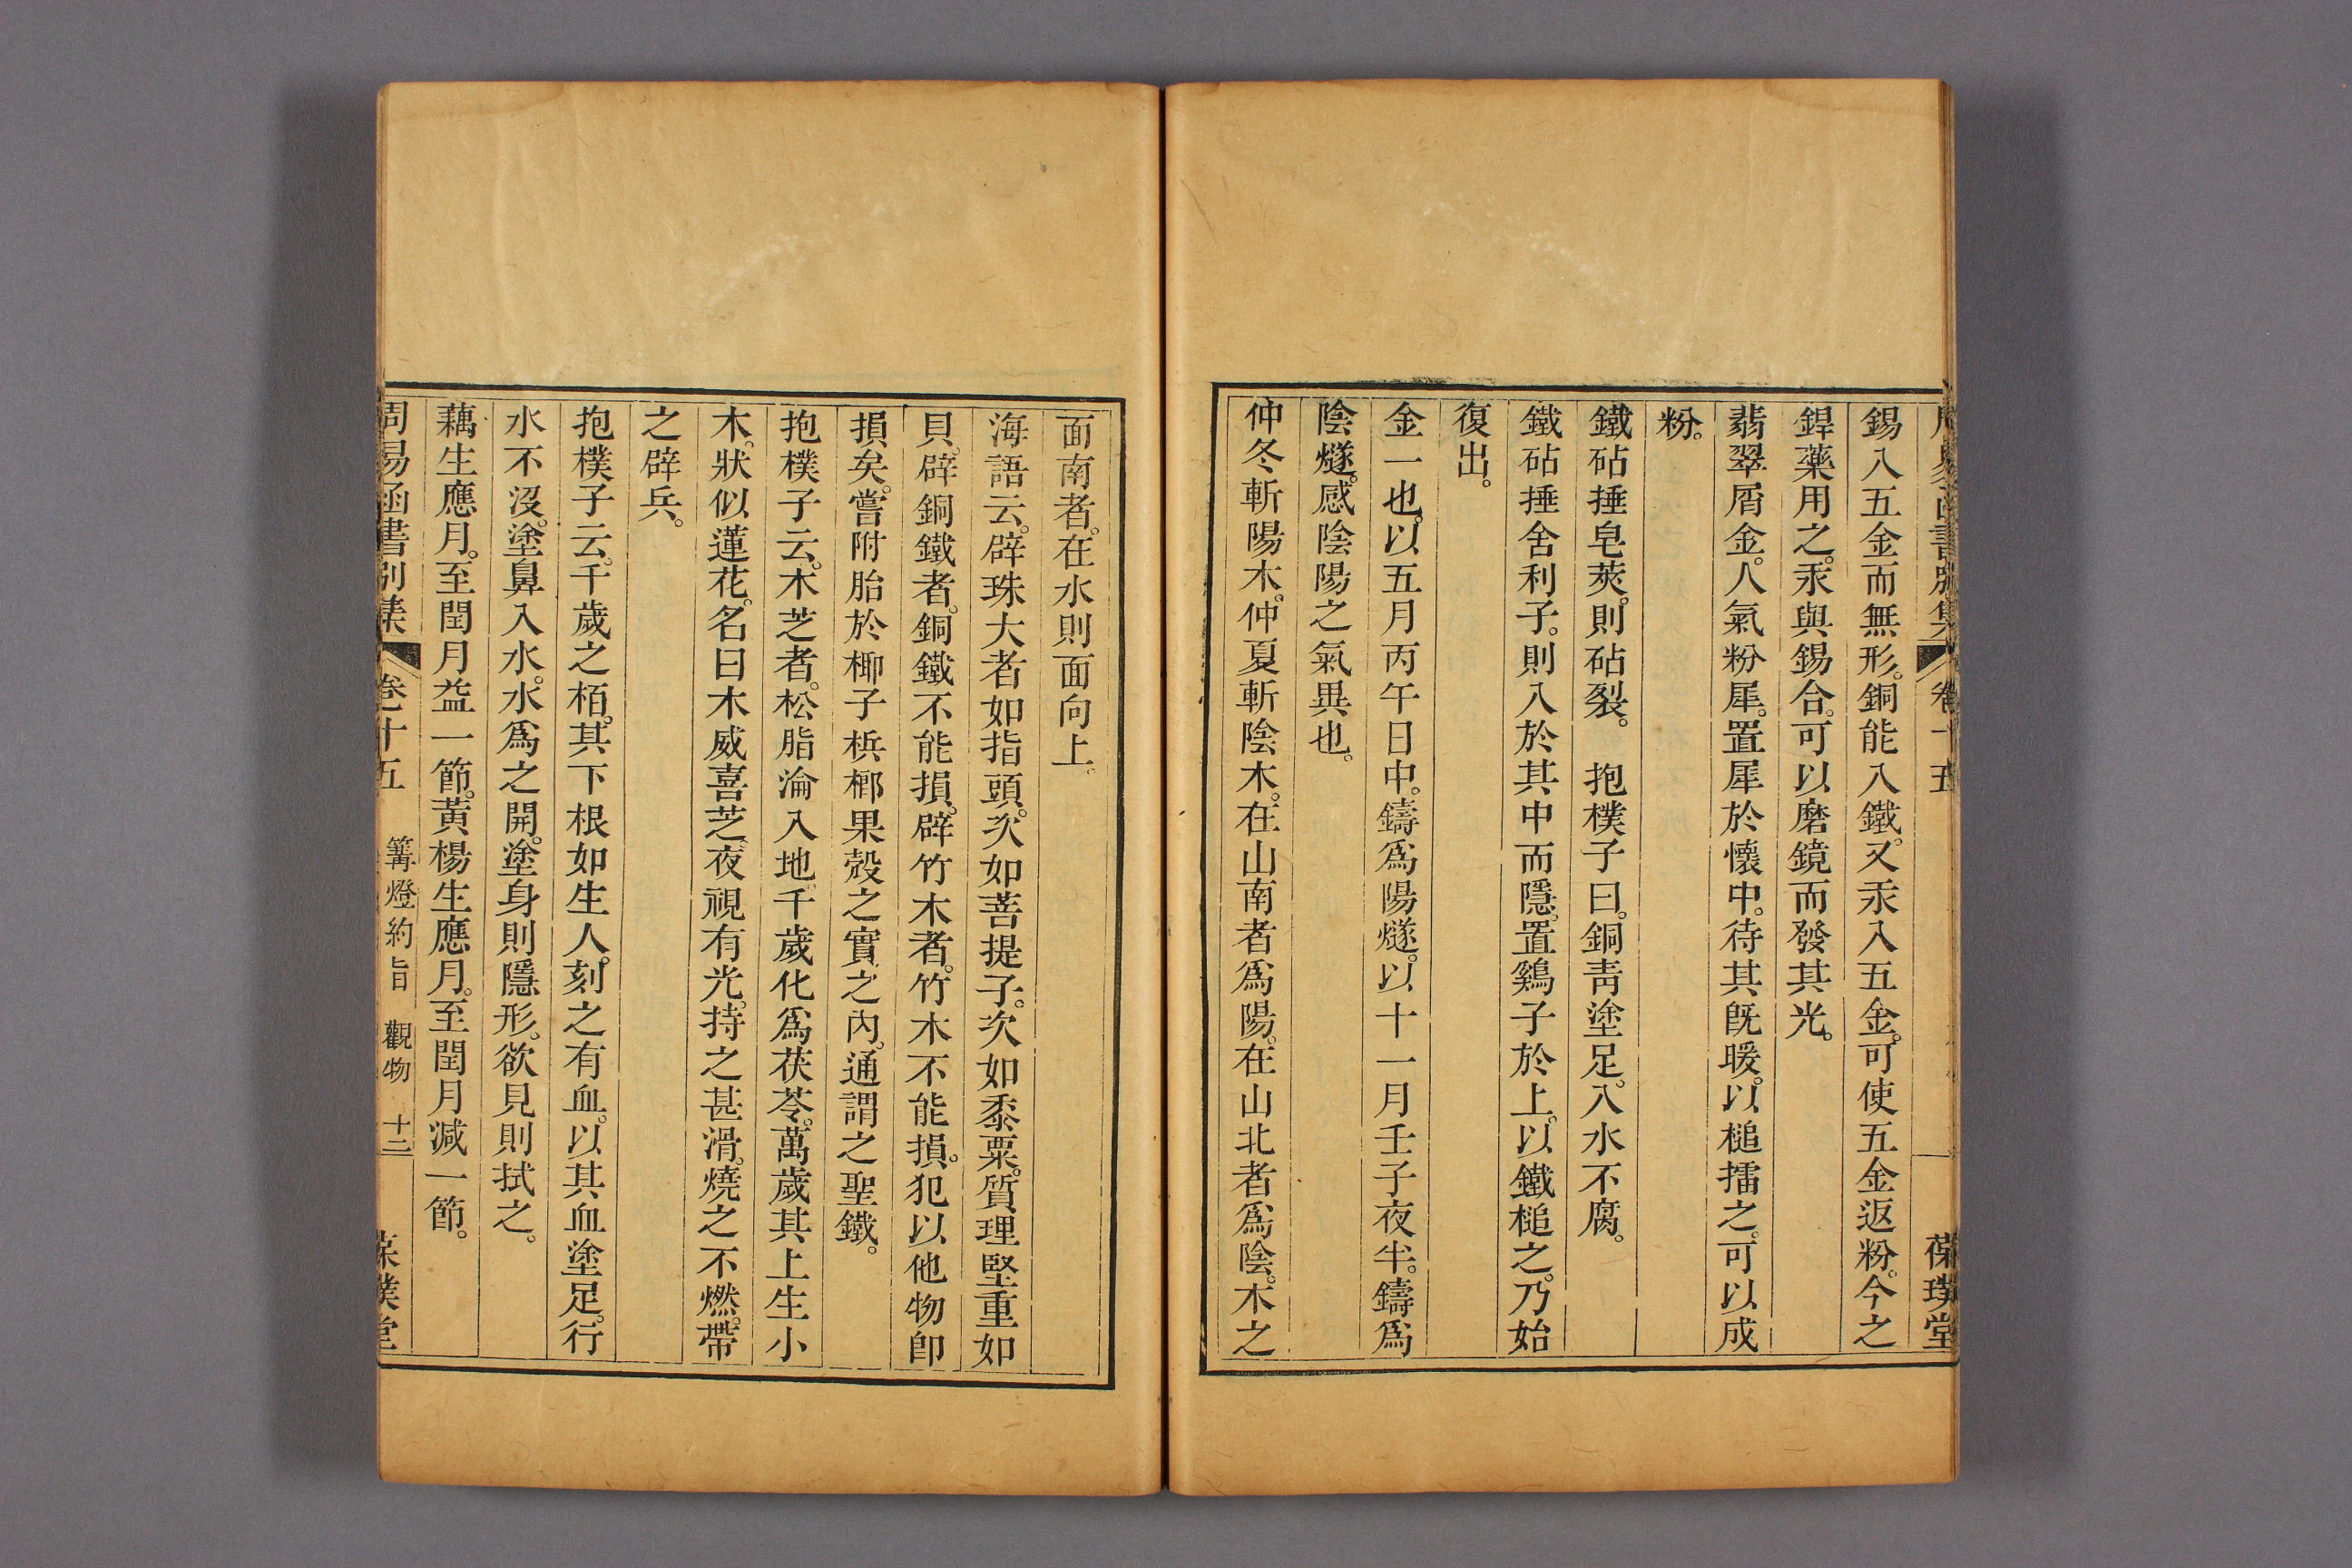 周易函書別集 卷十五 葆璞堂
錫入五金而無形。銅能入鐵。又汞入五金。可使五金返粉。今之
銲藥用之。汞與錫合。可以磨鏡而發其光。
翡翠屑金。人氣粉犀。置犀於懷中。待其旣暖。以槌擂之。可以成
粉。
鐵砧捶皂莢。則砧裂。 抱樸子曰。銅靑塗足。入水不腐。
鐵砧捶舍利子。則入於其中而隱。置鷄子於上。以鐵槌之。乃始
復出。
金一也。以五月丙午日中。鑄爲陽燧。以十一月壬子夜半。鑄爲
陰燧。感陰陽之氣異也。
仲冬斬陽木。仲夏斬陰木。在山南者爲陽。在山北者爲陰。木之
面南者。在水則面向上。
海語云。辟珠大者如指頭。次如菩提子。次如黍粟。質理堅重如
貝。辟銅鐵者。銅鐵不能損。辟竹木者。竹木不能損。犯以他物卽
損矣。嘗附胎於椰子梹榔果殼之實之內。通謂之聖鐵。
抱樸子云。木芝者。松脂淪入地。千歲化爲茯苓。萬歲其上生小
木。狀似蓮花。名曰木威喜芝。夜視有光。持之甚滑。燒之不燃。帶
之辟兵。
抱樸子云。千歲之栢。其下根如生人。刻之有血。以其血塗足。行
水不沒。塗鼻入水。水爲之開。塗身則隱形。欲見則拭之。
藕生應月。至閏月益一節。黃楊生應月。至閏月減一節。
周易函書別集 卷十五 篝燈約旨 觀物 十二 葆璞堂